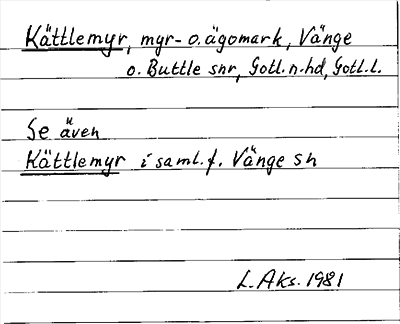 Kättlemyr, myr- o. ägomark, Vänge
o. Buttle snr, Gotl. n. hd, Gotl. l.
Se även
Kättlemyr i saml. f. Vänge sn
L. Aks. 1981